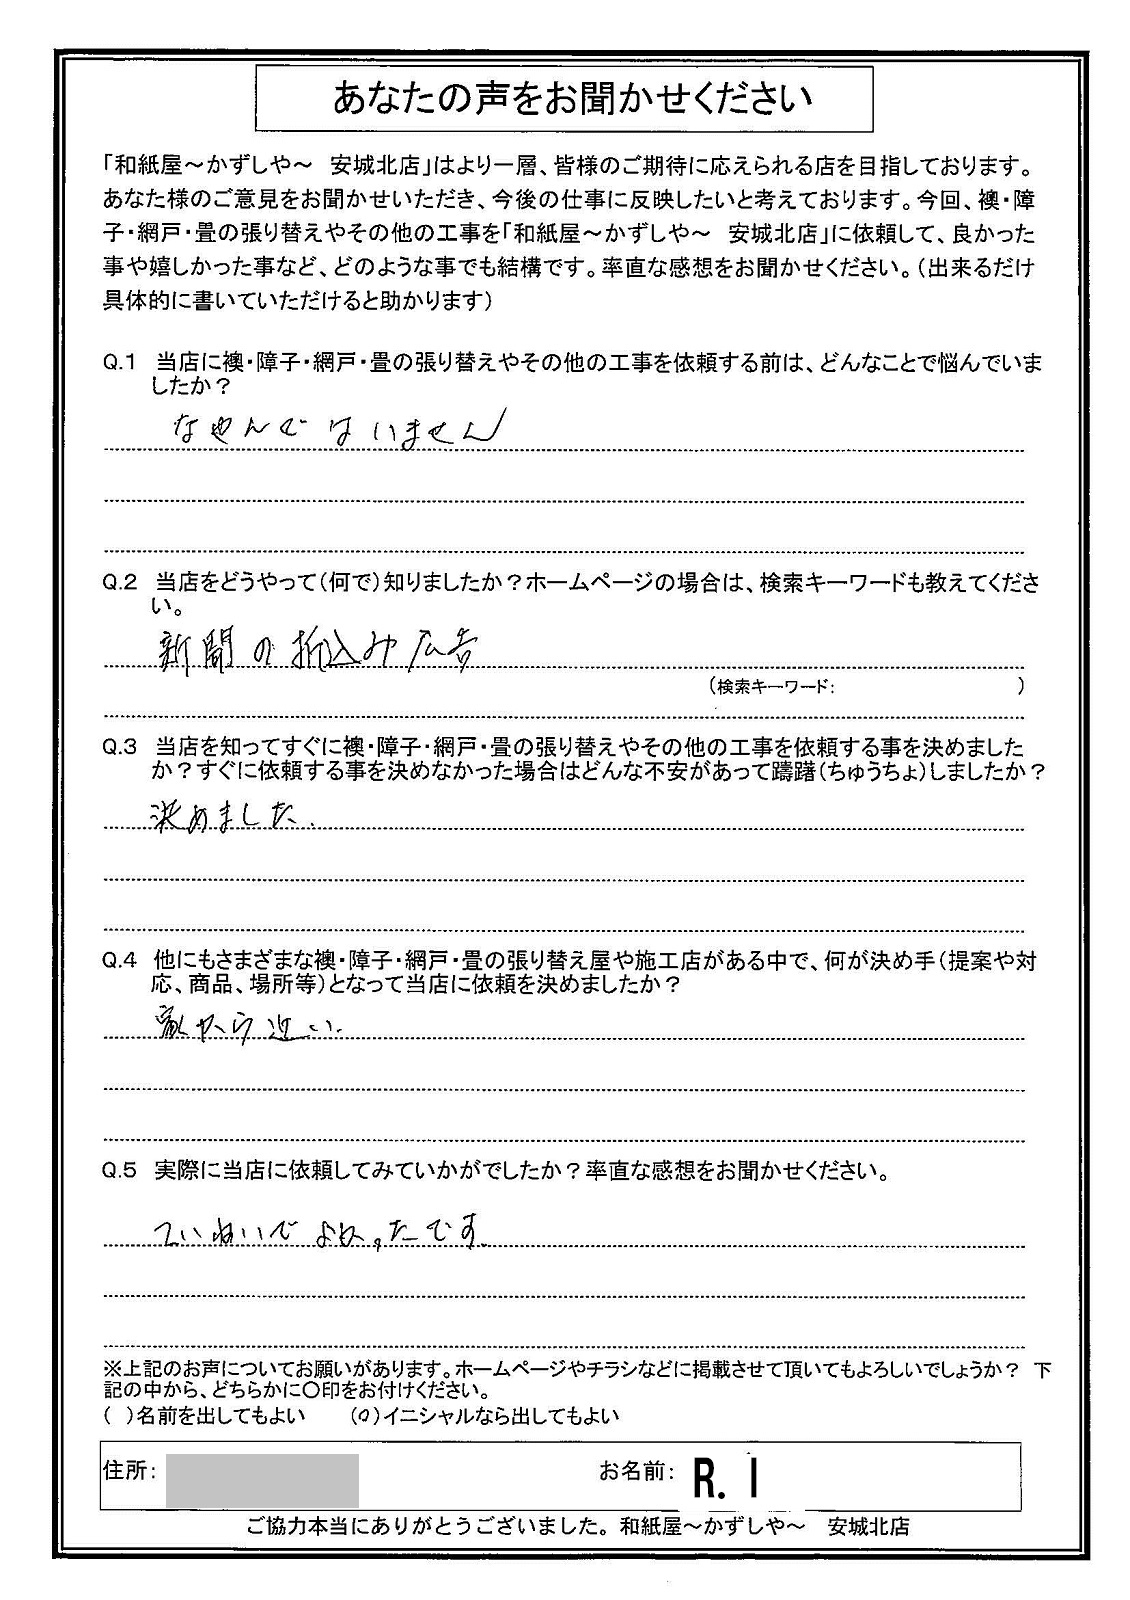 あなたの声をお聞かせください
「和紙屋～かずしや～　安城北店」はより一層、皆様のご期待に応えられる店を目指しております。
あなた様のご意見をお聞かせいただき、今後の仕事に反映したいと考えております。今回、襖・障
子・網戸・畳の張り替えやその他の工事を「和紙屋～かずしや～　安城北店」に依頼して、良かった
事や嬉しかった事など、どのような事でも結構です。率直な感想をお聞かせください。（出来るだけ
具体的に書いていただけると助かります）
Q.1　当店に襖・障子・網戸・畳の張り替えやその他の工事を依頼する前は、どんなことで悩んでいま
したか？
なやんではいません
Q.2　当店をどうやって（何で）知りましたか？ホームページの場合は、検索キーワードも教えてくださ
い。
新聞の折込み広告
（検索キーワード：　　　　　　　　　　）
Q.3　当店を知ってすぐに襖・障子・網戸・畳の張り替えやその他の工事を依頼する事を決めました
か？すぐに依頼する事を決めなかった場合はどんな不安があって躊躇（ちゅうちょ）しましたか？
決めました.
Q.4　他にもさまざまな襖・障子・網戸・畳の張り替え屋や施工店がある中で、何が決め手（提案や対
応、商品、場所等）となって当店に依頼を決めましたか？
家から近い.
Q.5　実際に当店に依頼してみていかがでしたか？率直な感想をお聞かせください。
ていねいでよかったです.
※上記のお声についてお願いがあります。ホームページやチラシなどに掲載させて頂いてもよろしいでしょうか？　下
記の中から、どちらかに〇印をお付けください。
（　）名前を出してもよい　　（〇）イニシャルなら出してもよい
住所：　　お名前：　R. I
ご協力本当にありがとうございました。和紙屋～かずしや～　安城北店